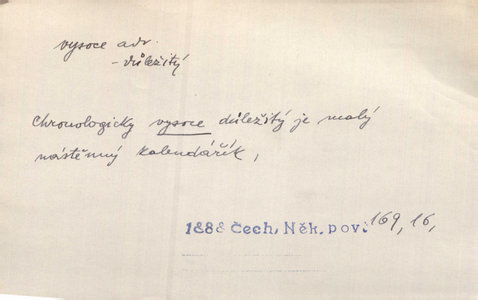 vysoce adv.
- důležitý
chronologicky vysoce důležitý je malý
nástěnný kalendářík,
1888 Čech, Něk. pov. 169, 16,